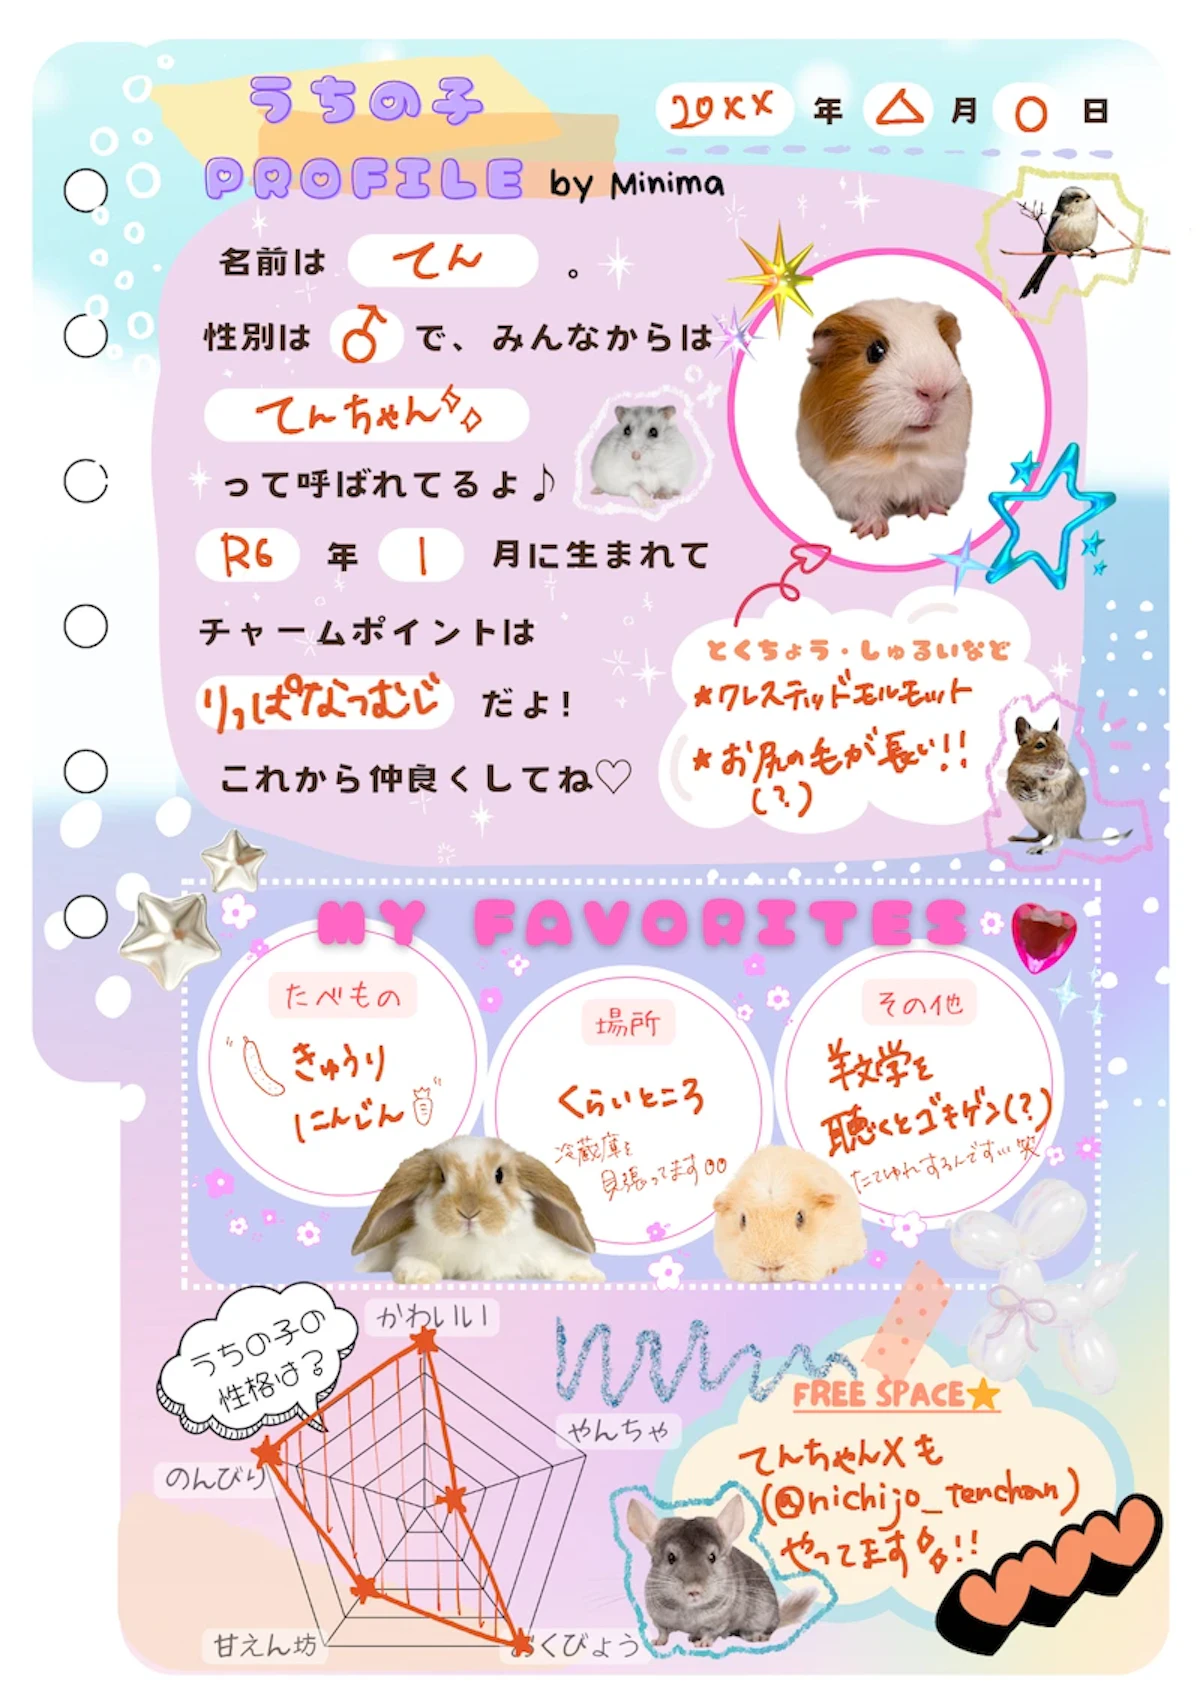 うちの子
PROFILE by Minima
20XX 年 △ 月 ○ 日
名前は てん 。
性別は ♂ で、みんなからは
てんちゃん
って呼ばれてるよ♪
R6 年 1 月に生まれて
チャームポイントは
りっぱなつむじ だよ!
これから仲良くしてね♡
とくちょう・しゅるいなど
★クレステッドモルモット
★お尻の毛が長い!!
(?)
MY FAVORITES
たべもの
きゅうり
にんじん
場所
くらいところ
冷蔵庫を
見張ってます
その他
羊文学を
聴くとゴキゲン(?)
たてゆれするんです… 笑
うちの子の
性格は?
かわいい
やんちゃ
のんびり
甘えん坊
おくびょう
FREE SPACE★
てんちゃんXも
(@nichijo_tenchan)
やってます!!